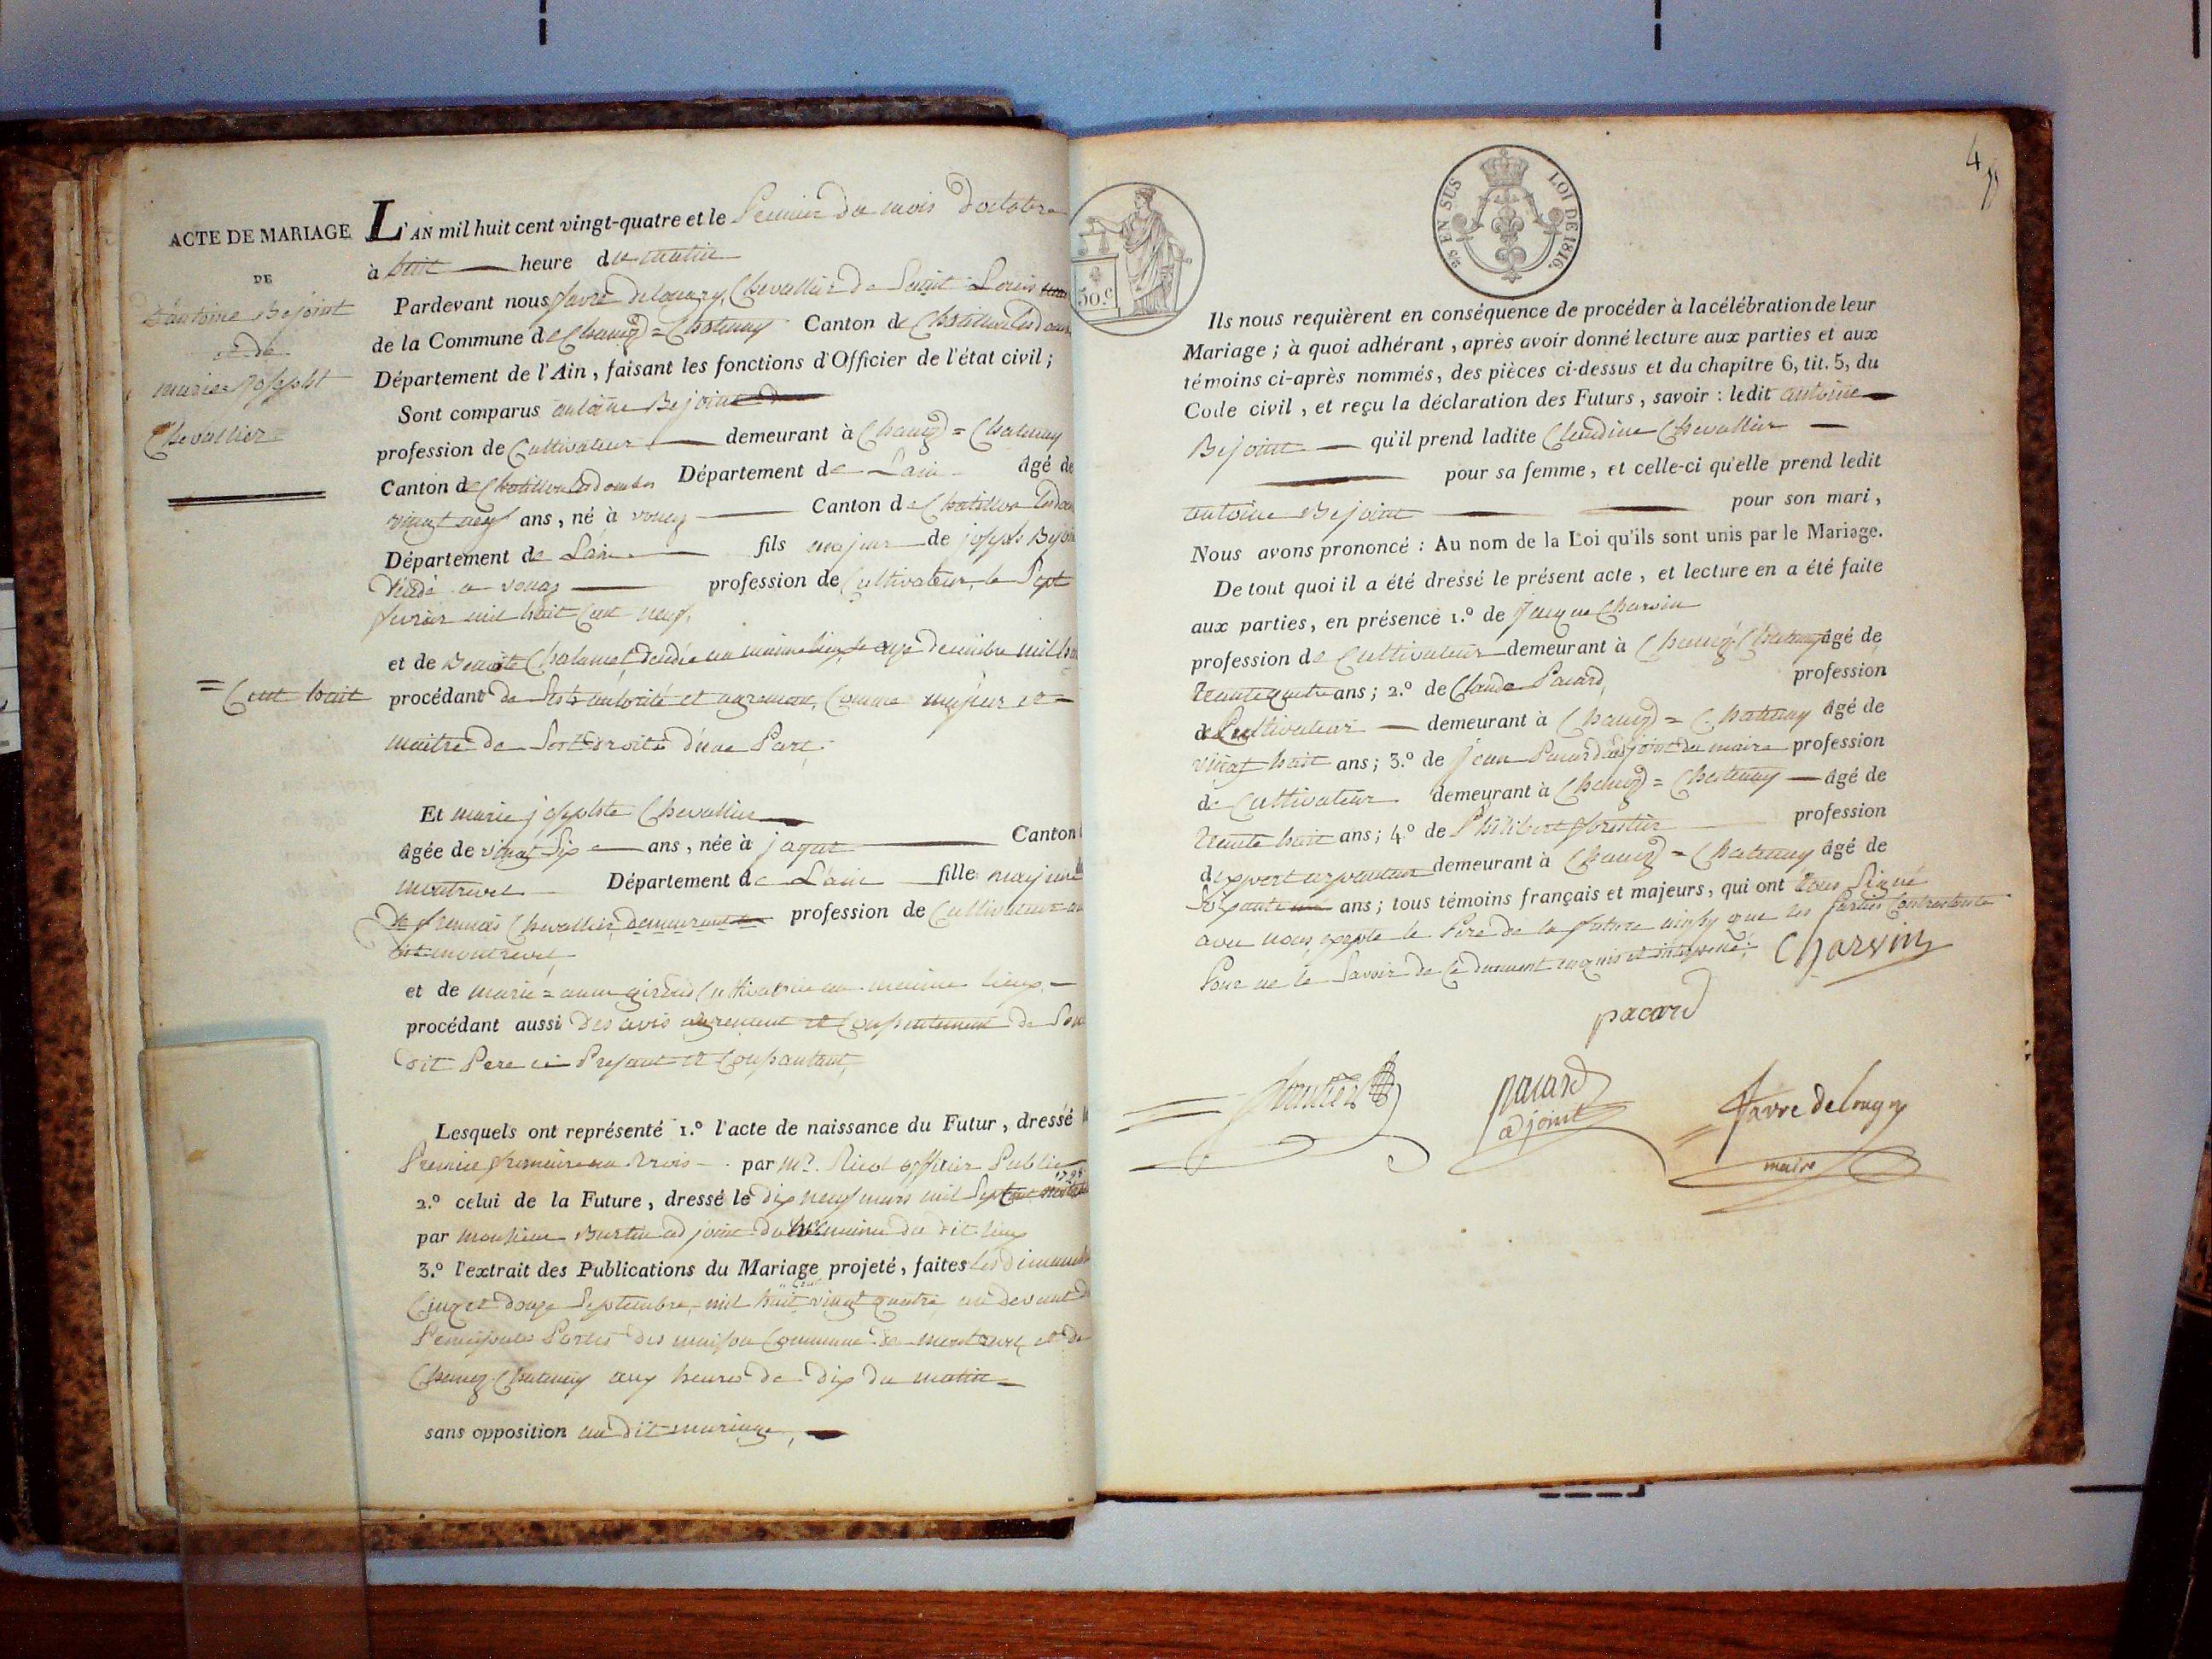 ACTE DE MARIAGE
DE
D'antoine Bejoint
et de
marie Josephte
Chevallier
= Cent huit
L'AN mil huit cent vingt-quatre et le Premier du mois Doctobre
à huit heure du matin
Pardevant nous favre delongry, Chevallier de Saint Louis
de la Commune de Chaneyd = Chatenay Canton de Chatillon les dom
Département de l'Ain, faisant les fonctions d'Officier de l'état civil;
Sont comparus antoine Bejoint
profession de Cultivateur demeurant à Chaneyd = Chatenay
Canton de Chatillon les dombes Département de Lain âgé de
vingt neuf ans, né à vonas Canton de Chatillon les dom
Département de Lain fils majeur de joseph Bejoin
décédé a vonas profession de Cultivateur, le Sept
fevrier mil huit Cent neuf,
et de Benoite Chalamel décédée au meme lieux le onze decembre mil hu
procédant de Ses autorité et agrement, Comme majeur et =
maitre de Ses droits d'une Part,
Et marie josephte Chevallier
âgée de vingt Six ans, née à jayat Canton
montrevel Département de L'ain fille majeure
de francois Chevallier demeurant profession de Cultivateur au
dit montrevel
et de marie = anne giroud Cultivatrice au meme lieux, =
procédant aussi Des avis agrement et Consentement de Son
dit Pere ci Present et Consantant,
Lesquels ont représenté 1.º l'acte de naissance du Futur, dressé le
Premier frimaire an trois par Mr. Nicol officier Public
1798
2.º celui de la Future, dressé le dix neuf mars mil Sept Cent
par monsieur Burtin ad joint du maire du dit lieux
3.º l'extrait des Publications du Mariage projeté, faites les dimanch
Cent
Cinq et douze Septembre, mil huit vingt quatre au devant d
Principales Portes des maison Commune de montrevel et de
Chaneyd Chatenay aux heures de dix du matin =
sans opposition au dit mariage,
4
50.C
25 EN SUS LOI DE 1816.
Ils nous requièrent en conséquence de procéder à la célébration de leur
Mariage; à quoi adhérant, après avoir donné lecture aux parties et aux
témoins ci-après nommés, des pièces ci-dessus et du chapitre 6, tit. 5, du
Code civil, et reçu la déclaration des Futurs, savoir: ledit antoine
Bejoint qu'il prend ladite Claudine Chevallier
pour sa femme, et celle-ci qu'elle prend ledit
antoine Bejoint pour son mari,
Nous avons prononcé: Au nom de la Loi qu'ils sont unis par le Mariage.
De tout quoi il a été dressé le présent acte, et lecture en a été faite
aux parties, en présence 1.º de Jacque Charvin
profession de Cultivateur demeurant à Chaneyd Chatenay âgé de
trente quatre ans; 2.º de Claude Pacard profession
de Cultivateur demeurant à Chaneyd = Chatenay âgé de
vingt huit ans; 3.º de jean Pacard adjoint du maire profession
de Cultivateur demeurant à Chaneyd = Chatenay âgé de
trente huit ans; 4.º de Philibert forestier profession
d'expert arpenteur demeurant à Chaneyd = Chatenay âgé de
Soixante ans; tous témoins français et majeurs, qui ont tous Signé
avec nous, exepte le Pere de la future ainsy que les Parties Contractante
Pour ne le Savoir de Ce dument enquis et interpellé,
Charvin
pacard
pacard
adjoint
favre delongry
maire